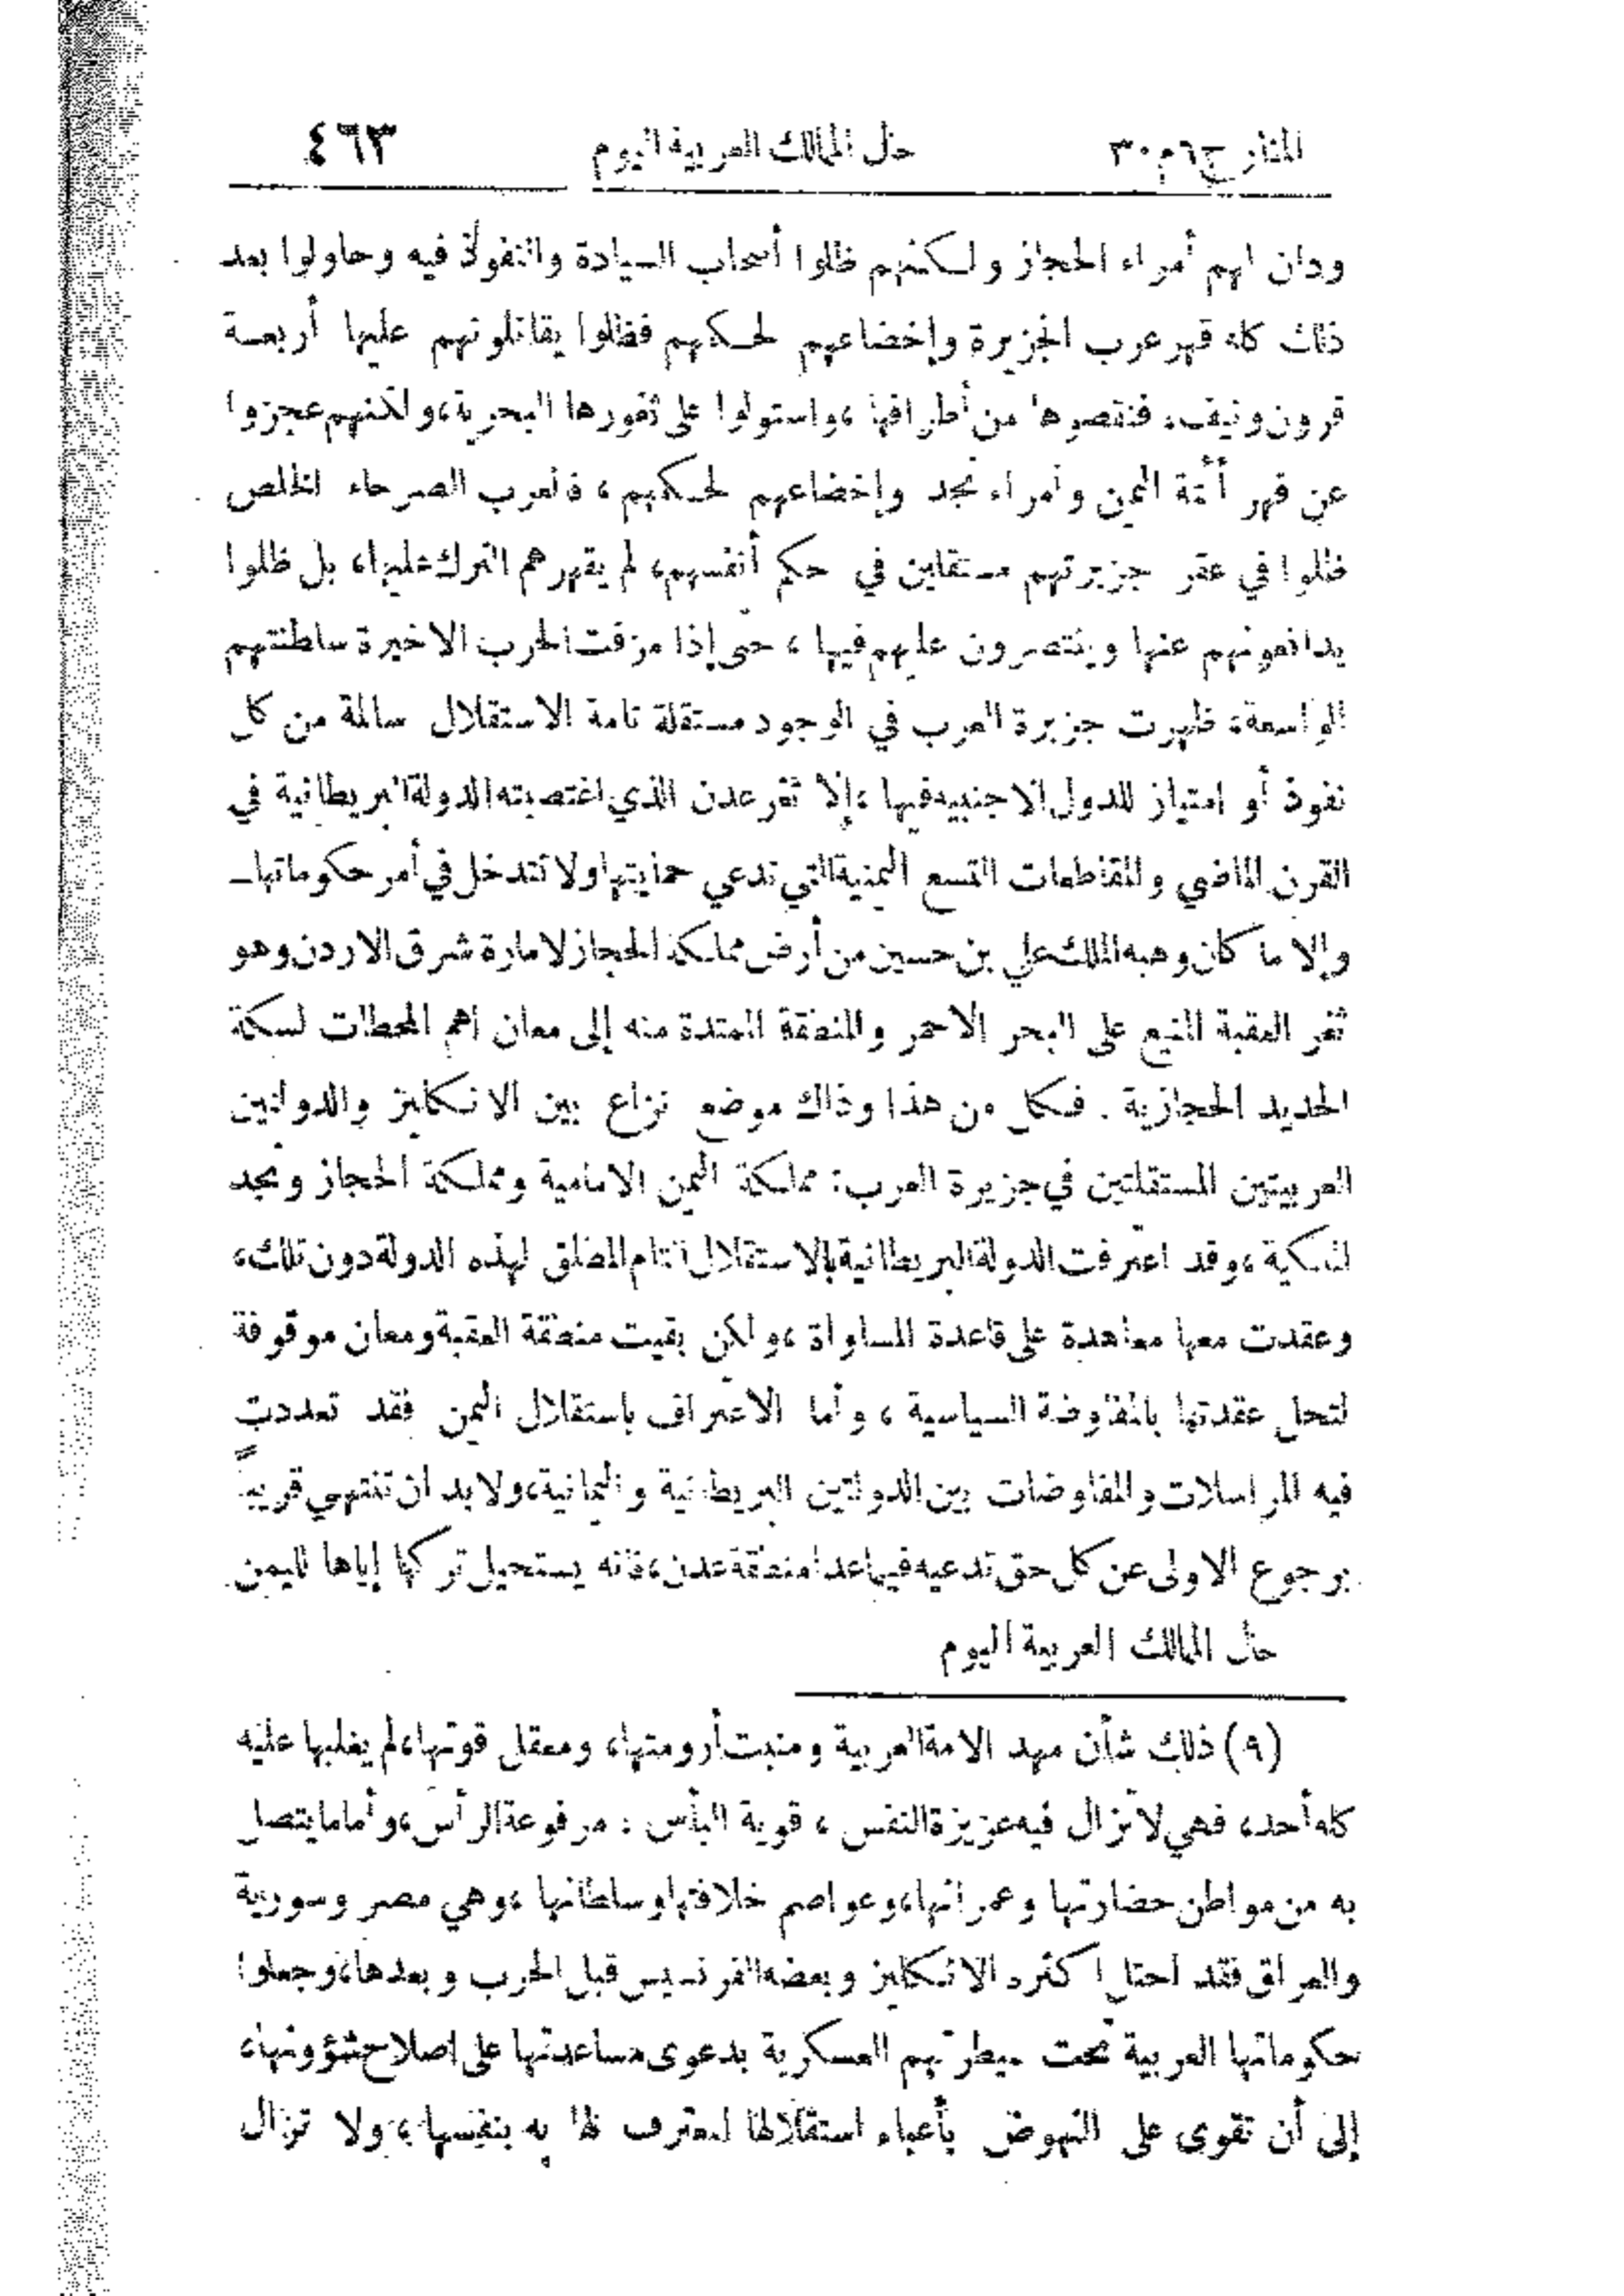 المنار ج٦م٣٠ حال الممالك العربية اليوم ٤٦٣
ودان لهم أمراء الحجاز ولكنهم ظلوا أصحاب السيادة والنفوذ فيه وحاولوا بعد
ذلك كله قهر عرب الجزيرة وإخضاعهم لحكمهم فظلوا يقاتلونهم عليها أربعة
قرون ونيف، فنقصوها من أطرافها، واستولوا على ثغورها البحرية، ولكنهم عجزوا
عن قهر أئمة اليمن وأمراء نجد وإخضاعهم لحكمهم، فالعرب الصرحاء الخلص
ظلوا في عقر جزيرتهم مستقلين في حكم أنفسهم، لم يقهرهم الترك عليها، بل ظلوا
يدافعونهم عنها وينتصرون عليهم فيها، حتى إذا مزقت الحرب الاخيرة سلطنتهم
الواسعة، ظهرت جزيرة العرب في الوجود مستقلة تامة الاستقلال سالمة من كل
نفوذ أو امتياز للدول الاجنبية فيها، إلا ثغر عدن الذي اغتصبته الدولة البريطانية في
القرن الماضي والمقاطعات التسع اليمنية التي تدعي حمايتها ولا تتدخل في أمر حكوماتها ـ
وإلا ما كان وهبه الملك علي بن حسين من أرض مملكة الحجاز لامارة شرق الاردن وهو
ثغر العقبة المنيع على البحر الاحمر والمنطقة الممتدة منه إلى معان أهم المحطات لسكة
الحديد الحجازية . فكل من هذا وذاك موضع نزاع بين الانكليز والدولتين
العربيتين المستقلتين في جزيرة العرب: مملكة اليمن الامامية ومملكة الحجاز ونجد
الملكية، وقد اعترفت الدولة البريطانية بالاستقلال التام المطلق لهذه الدولة دون تلك،
وعقدت معها معاهدة على قاعدة المساواة، ولكن بقيت منطقة العقبة ومعان موقوفة
لتحل عقدتها بالمفاوضة السياسية، وأما الاعتراف باستقلال اليمن فقد تعددت
فيه المراسلات والمفاوضات بين الدولتين البريطانية واليمانية، ولا بد أن تنتهي قريباً
برجوع الاولى عن كل حق تدعيه فيما عدا منطقة عدن، فانه يستحيل تركها إياها لليمن
حال الممالك العربية اليوم
(٩) ذلك شأن مهد الامة العربية ومنبت أرومتها، ومعقل قوتها، لم يغلبها عليه
كله أحد، فهي لا تزال فيه عزيزة النفس، قوية البأس، مرفوعة الرأس، وأما ما يتصل
به من مواطن حضارتها وعمرانها، وعواصم خلافتها وسلطانها، وهي مصر وسورية
والعراق فقد احتل أكثره الانكليز وبعضه الفرنسيس قبل الحرب وبعدها، وجعلوا
حكوماتها العربية تحت سيطرتهم العسكرية بدعوى مساعدتها على اصلاح شؤونها،
إلى أن تقوى على النهوض بأعباء استقلالها المعترف لها به بنفسها، ولا تزال